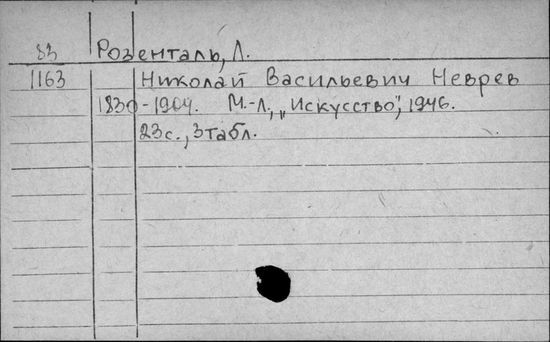 83 Розенталь, Л.
1163 Николай Васильевич Неврев
1830-1904. М.-Л., „Искусство", 1946.
23с., 3табл.